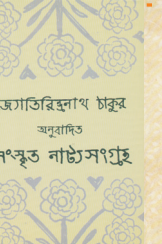 জ্যোতিরিন্দ্রনাথ ঠাকুর
অনুবাদিত
সংস্কৃত নাট্যসংগ্রহ